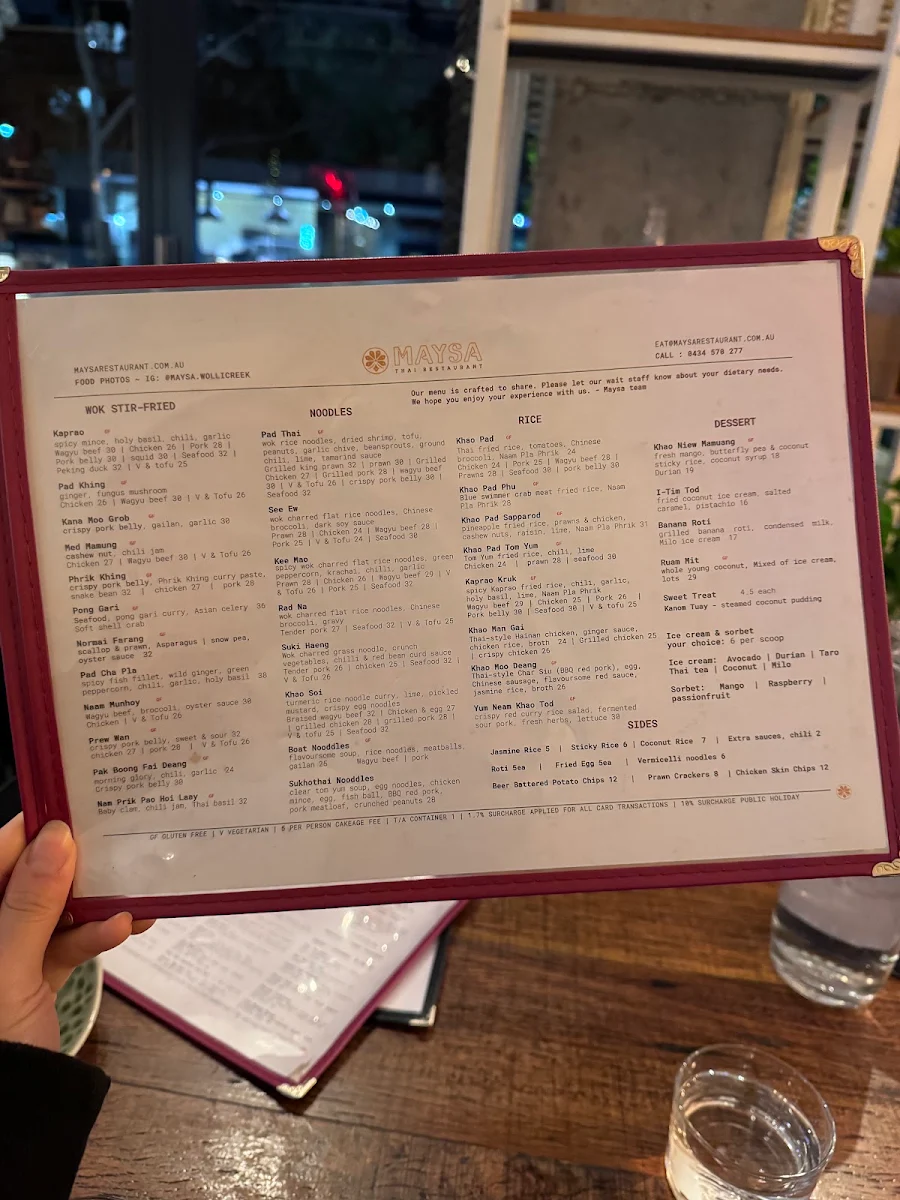 MAYSARESTAURANT.COM.AU
FOOD PHOTOS - IG: @MAYSA.WOLLICREEK
MAYSA
THAI RESTAURANT
EAT@MAYSARESTAURANT.COM.AU
CALL : 0434 576 277
Our menu is crafted to share. Please let our wait staff know about your dietary needs.
We hope you enjoy your experience with us. - Maysa team
WOK STIR-FRIED
Kaprao GF
spicy mince, holy basil, chili, garlic
Wagyu beef 30 | Chicken 26 | Pork 28 |
Pork belly 30 | squid 30 | Seafood 32 |
Peking duck 32 | V & tofu 25
Pad Khing GF
ginger, fungus mushroom
Chicken 26 | Wagyu beef 30 | V & Tofu 26
Kana Moo Grob GF
crispy pork belly, gailan, garlic 30
Med Mamung GF
cashew nut, chili jam
Chicken 27 | Wagyu beef 30 | V & Tofu 26
Phrik Khing GF
crispy pork belly, Phrik Khing curry paste,
snake bean 32 | chicken 27 | pork 28
Pong Gari GF
Seafood, pong gari curry, Asian celery 36
Soft shell crab
Normai Farang GF
scallop & prawn, Asparagus | snow pea,
oyster sauce 32
Pad Cha Pla
spicy fish fillet, wild ginger, green
peppercorn, chili, garlic, holy basil 38
Naam Munhoy GF
Wagyu beef, broccoli, oyster sauce 30
Chicken | V & Tofu 26
Prew Wan GF
crispy pork belly, sweet & sour 32
chicken 27 | pork 28 | V & Tofu 26
Pak Boong Fai Deang GF
morning glory, chili, garlic 24
Crispy pork belly 30
Nam Prik Pao Hoi Leay GF
Baby clam, chili jam, Thai basil 32
NOODLES
Pad Thai GF
wok rice noodles, dried shrimp, tofu,
peanuts, garlic chive, beansprouts, ground
chili, lime, tamarind sauce
Grilled king prawn 32 | prawn 30 | Grilled
Chicken 27 | Grilled pork 28 | Wagyu beef
30 | V & Tofu 26 | crispy pork belly 30 |
Seafood 32
See Ew
wok charred flat rice noodles, Chinese
broccoli, dark soy sauce
Prawn 28 | Chicken 24 | Wagyu beef 28 |
Pork 25 | V & Tofu 24 | Seafood 30
Kee Mao
spicy wok charred flat rice noodles, green
peppercorn, krachai, chilli, garlic
Prawn 28 | Chicken 26 | Wagyu beef 29 | V
& Tofu 26 | Pork 25 | Seafood 32
Rad Na
wok charred flat rice noodles, Chinese
broccoli, gravy
Tender pork 27 | Seafood 32 | V & Tofu 25
Suki Haeng
Wok charred grass noodle, crunch
vegetables, chilli & red bean curd sauce
Tender pork 26 | chicken 25 | Seafood 32 |
V & Tofu 26
Khao Soi
turmeric rice noodle curry, lime, pickled
mustard, crispy egg noodles
Braised wagyu beef 32 | Chicken & egg 27
| grilled chicken 28 | grilled pork 28 |
V & tofu 25 | Seafood 32
Boat Nooddles
flavoursome soup, rice noodles, meatballs,
gailan 26 Wagyu beef | pork
Sukhothai Nooddles
clear tom yum soup, egg noodles, chicken
mince, egg, fish ball, BBQ red pork,
pork meatloaf, crunched peanuts 28
RICE
Khao Pad GF
Thai fried rice, tomatoes, Chinese
broccoli, Naam Pla Phrik 24
Chicken 24 | Pork 25 | Wagyu beef 28 |
Prawns 28 | Seafood 30 | pork belly 30
Khao Pad Phu GF
Blue swimmer crab meat fried rice, Naam
Pla Phrik 28
Khao Pad Sapparod GF
pineapple fried rice, prawns & chicken,
cashew nuts, raisin, lime, Naam Pla Phrik 31
Khao Pad Tom Yum GF
Tom Yum fried rice, chili, lime
Chicken 24 | prawn 28 | seafood 30
Kaprao Kruk GF
spicy Kaprao fried rice, chili, garlic,
holy basil, lime, Naam Pla Phrik
Wagyu beef 29 | Chicken 25 | Pork 26 |
Pork belly 30 | Seafood 30 | V & tofu 25
Khao Man Gai
Thai-style Hainan chicken, ginger sauce,
chicken rice, broth 24 | Grilled chicken 25
| crispy chicken 26
Khao Moo Deang GF
Thai-style Char Siu (BBQ red pork), egg,
Chinese sausage, flavoursome red sauce,
jasmine rice, broth 26
Yum Neam Khao Tod GF
crispy red curry rice salad, fermented
sour pork, fresh herbs, lettuce 30
DESSERT
Khao Niew Mamuang GF
fresh mango, butterfly pea & coconut
sticky rice, coconut syrup 18
Durian 19
I-Tim Tod
fried coconut ice cream, salted
caramel, pistachio 16
Banana Roti
grilled banana roti, condensed milk,
Milo ice cream 17
Ruam Mit GF
whole young coconut, Mixed of ice cream,
lots 29
Sweet Treat 4.5 each
Kanom Tuay - steamed coconut pudding
Ice cream & sorbet
your choice: 6 per scoop
Ice cream: Avocado | Durian | Taro
Thai tea | Coconut | Milo
Sorbet: Mango | Raspberry |
passionfruit
SIDES
Jasmine Rice 5 | Sticky Rice 6 | Coconut Rice 7 | Extra sauces, chili 2
Roti 5ea | Fried Egg 5ea | Vermicelli noodles 6
Beer Battered Potato Chips 12 | Prawn Crackers 8 | Chicken Skin Chips 12
GF GLUTEN FREE | V VEGETARIAN | 5 PER PERSON CAKEAGE FEE | T/A CONTAINER 1 | 1.7% SURCHARGE APPLIED FOR ALL CARD TRANSACTIONS | 10% SURCHARGE PUBLIC HOLIDAY